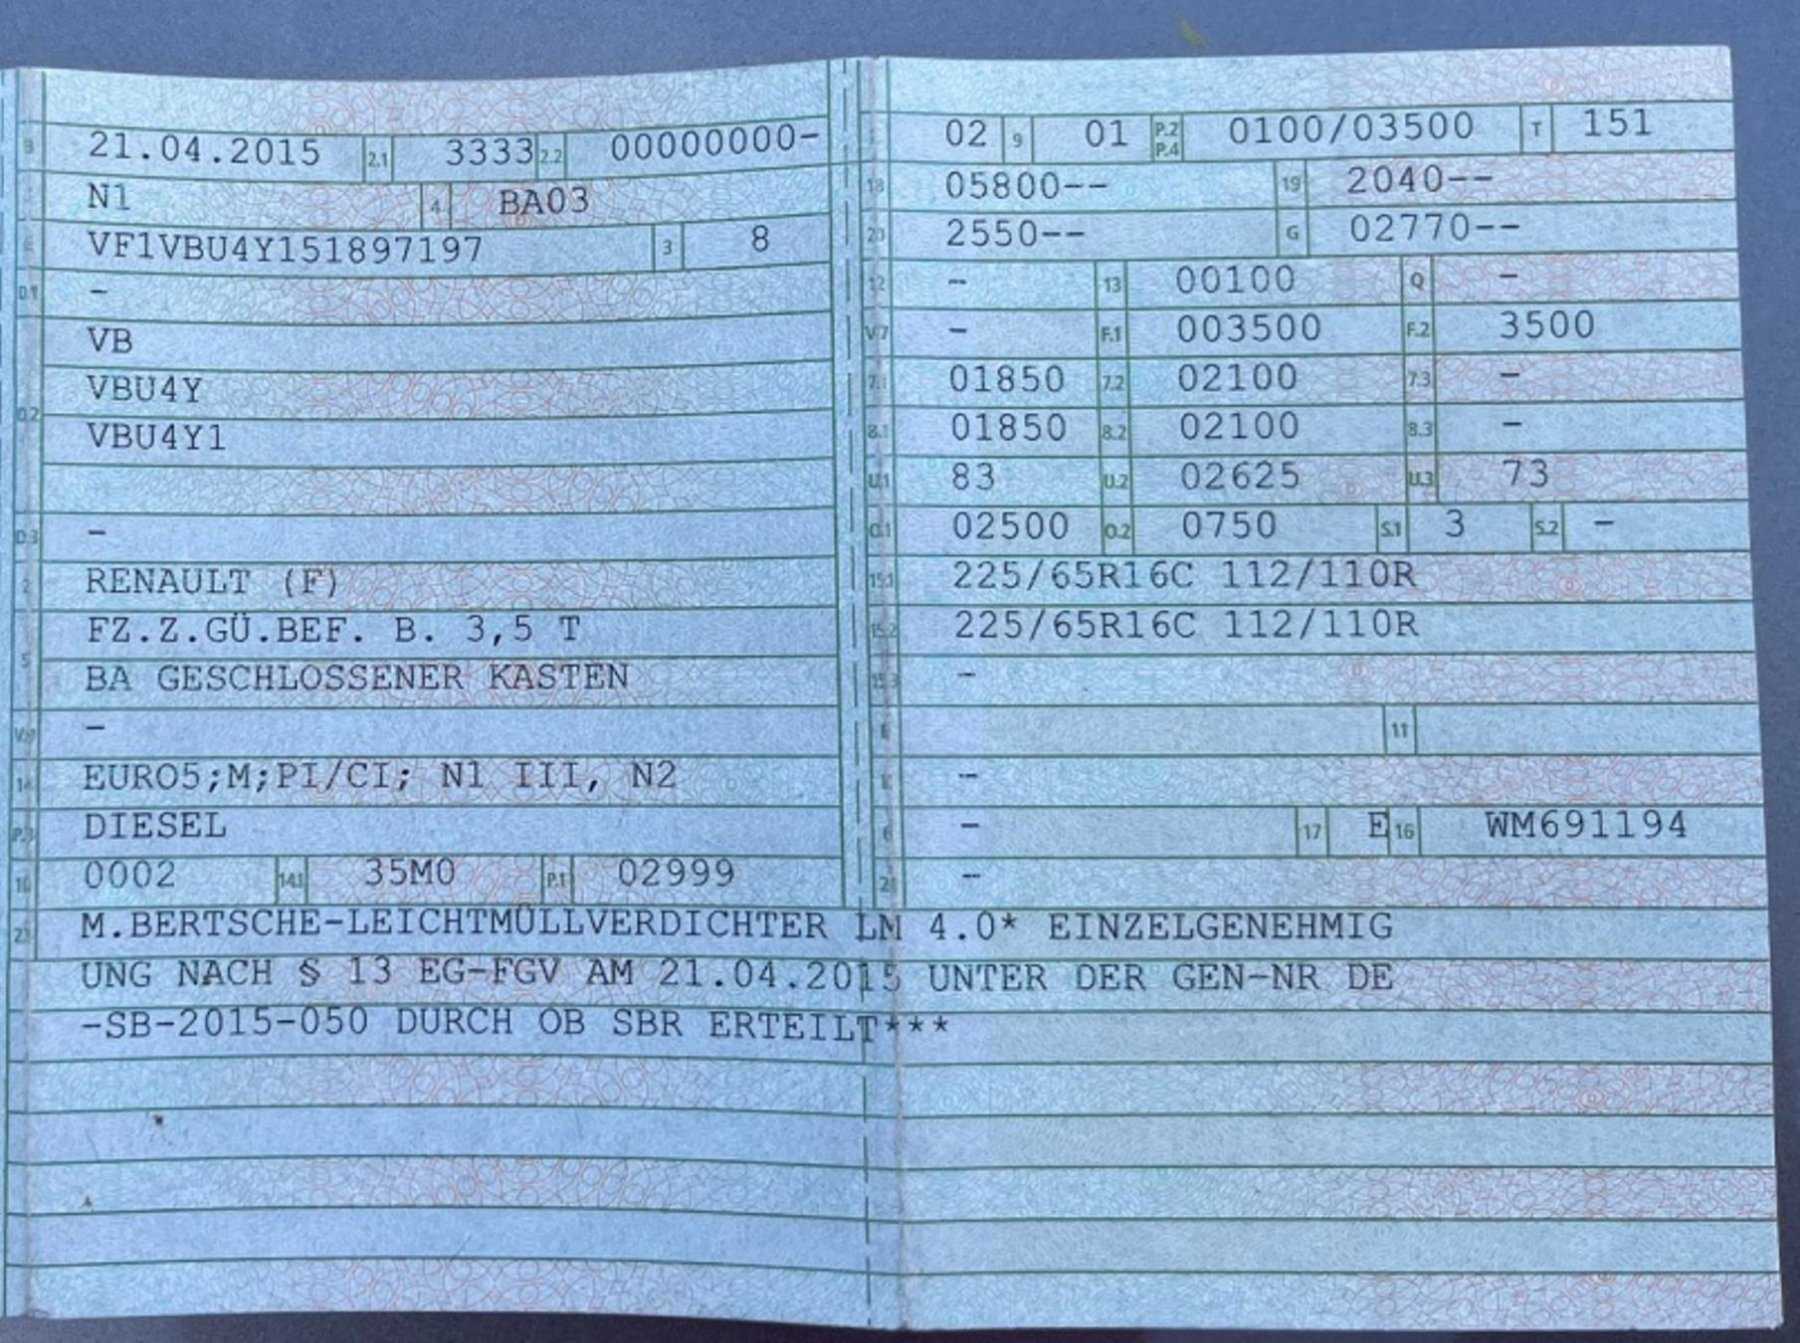 B 21.04.2015 2.1 3333 2.2 00000000-
N1 4 BA03
E VF1VBU4Y151897197 3 8
D.1 -
VB
D.2 VBU4Y
VBU4Y1
D.3 -
2 RENAULT (F)
FZ.Z.GÜ.BEF. B. 3,5 T
5 BA GESCHLOSSENER KASTEN
V.9 -
14 EURO5;M;PI/CI; N1 III, N2
P.3 DIESEL
10 0002 14.1 35M0 P.1 02999
02 9 01 P.2 P.4 0100/03500 T 151
18 05800-- 19 2040--
20 2550-- G 02770--
12 - 13 00100 Q -
V.7 - F.1 003500 F.2 3500
7.1 01850 7.2 02100 7.3 -
8.1 01850 8.2 02100 8.3 -
U.1 83 U.2 02625 U.3 73
O.1 02500 O.2 0750 S.1 3 S.2 -
15.1 225/65R16C 112/110R
15.2 225/65R16C 112/110R
15.3 -
11
-
6 - 17 E 16 WM691194
21 -
22 M.BERTSCHE-LEICHTMÜLLVERDICHTER LM 4.0* EINZELGENEHMIG
UNG NACH § 13 EG-FGV AM 21.04.2015 UNTER DER GEN-NR DE
-SB-2015-050 DURCH OB SBR ERTEILT***